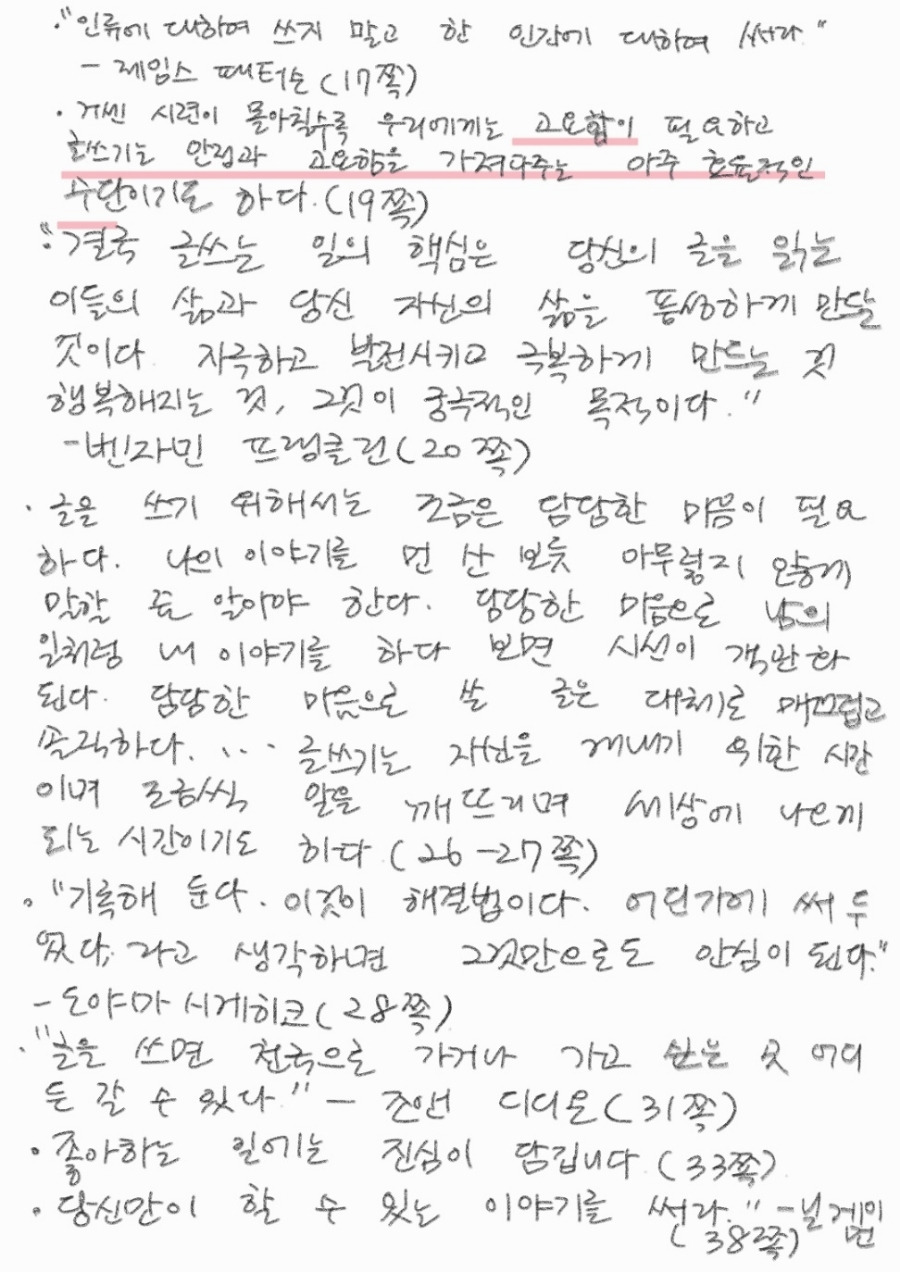 ·"인류에 대하여 쓰지 말고 한 인간에 대하여 써라."
- 제임스 패터슨(17쪽)
· 거센 시련이 몰아칠수록 우리에게는 고요함이 필요하고
글쓰기는 안정과 고요함을 가져다주는 아주 효율적인
수단이기도 하다.(19쪽)
·"결국 글쓰는 일의 핵심은 당신의 글을 읽는
이들의 삶과 당신 자신의 삶을 풍성하게 만들
것이다. 자극하고 발전시키고 극복하게 만드는 것
행복해지는 것, 그것이 궁극적인 목적이다."
-벤자민 프랭클린(20쪽)
· 글을 쓰기 위해서는 조금은 담담한 마음이 필요
하다. 나의 이야기를 먼 산 보듯 아무렇지 않게
말할 줄 알아야 한다. 담담한 마음으로 남의
일처럼 내 이야기를 하다 보면 시선이 객관화
된다. 담담한 마음으로 쓴 글은 대체로 매끄럽고
솔직하다. ... 글쓰기는 자신을 꺼내기 위한 시간
이며 조금씩 알을 깨뜨리며 세상에 나오게
되는 시간이기도 하다 (26-27쪽)
· "기록해 둔다. 이것이 해결법이다. 어딘가에 써 두
었다, 라고 생각하면 그것만으로도 안심이 된다."
- 도야마 시게히코(28쪽)
·"글을 쓰면 천국으로 가거나 가고 싶은 곳 어디
든 갈 수 있다." - 조앤 디디온(31쪽)
· 좋아하는 일에는 진심이 담깁니다.(33쪽)
· 당신만이 할 수 있는 이야기를 써라." -닐게이먼
(38쪽)